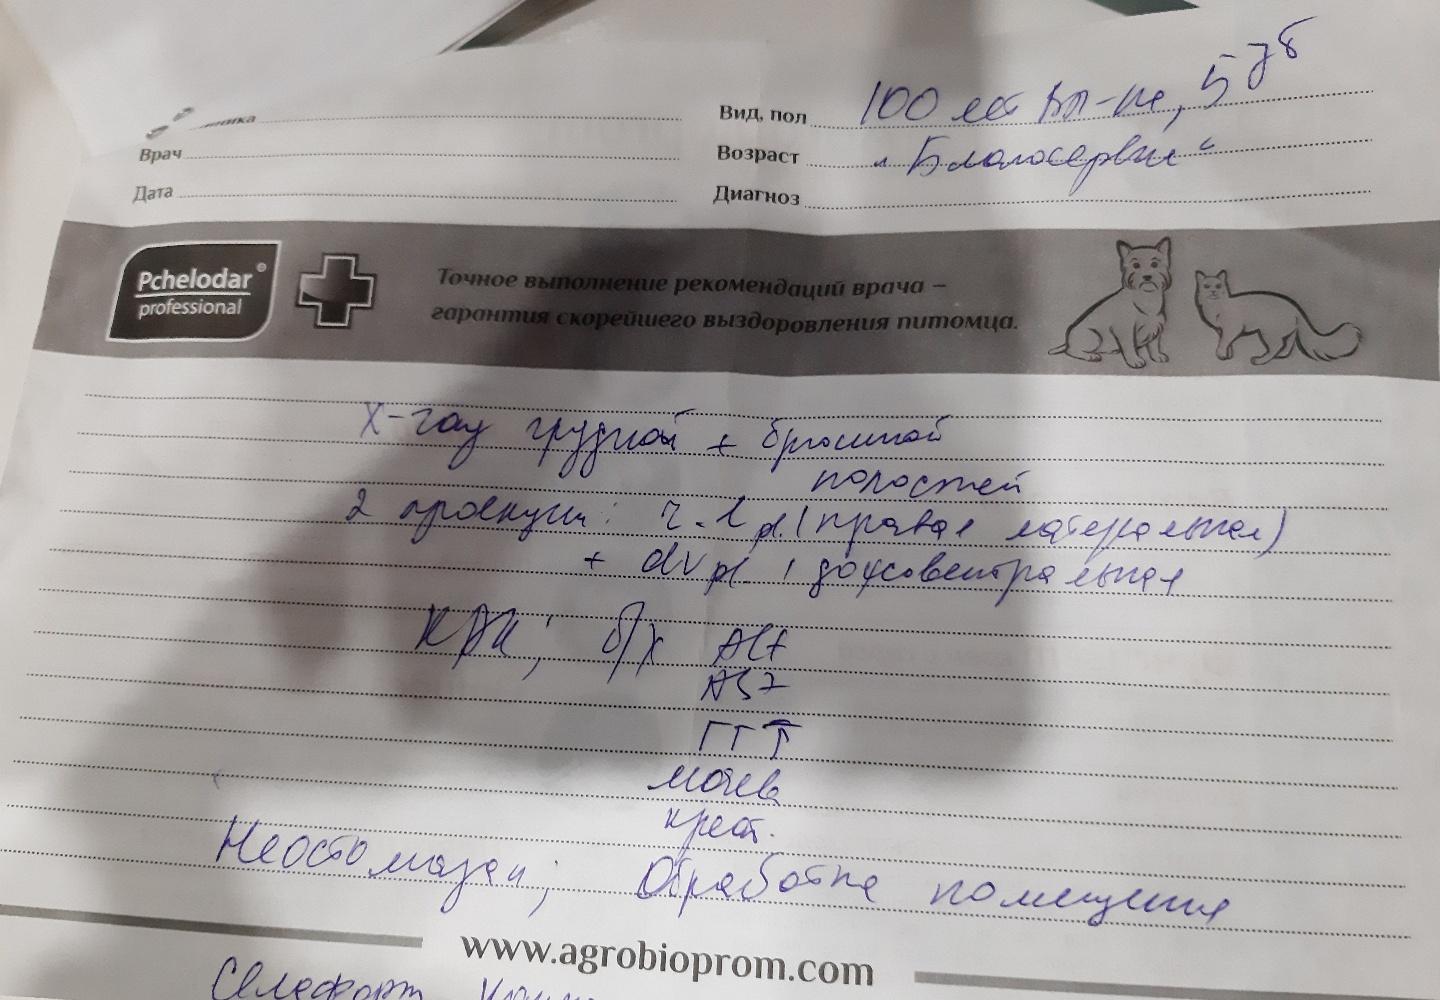 Вид, пол 100 лет Вл-ка, 57б
Врач
Возраст "Благосервис"
Дата
Диагноз
Pchelodar®
professional
Точное выполнение рекомендаций врача –
гарантия скорейшего выздоровления питомца.
X-ray грудной + брюшной
полостей
2 проекции: r.l pl. (правая латеральная)
+ dv pl. (дорсовентральная
КАК; б/х Alt
AST
ГГТ
мочев
креат.
Неостомазан; Обработка помещения
www.agrobioprom.com
Селафорт